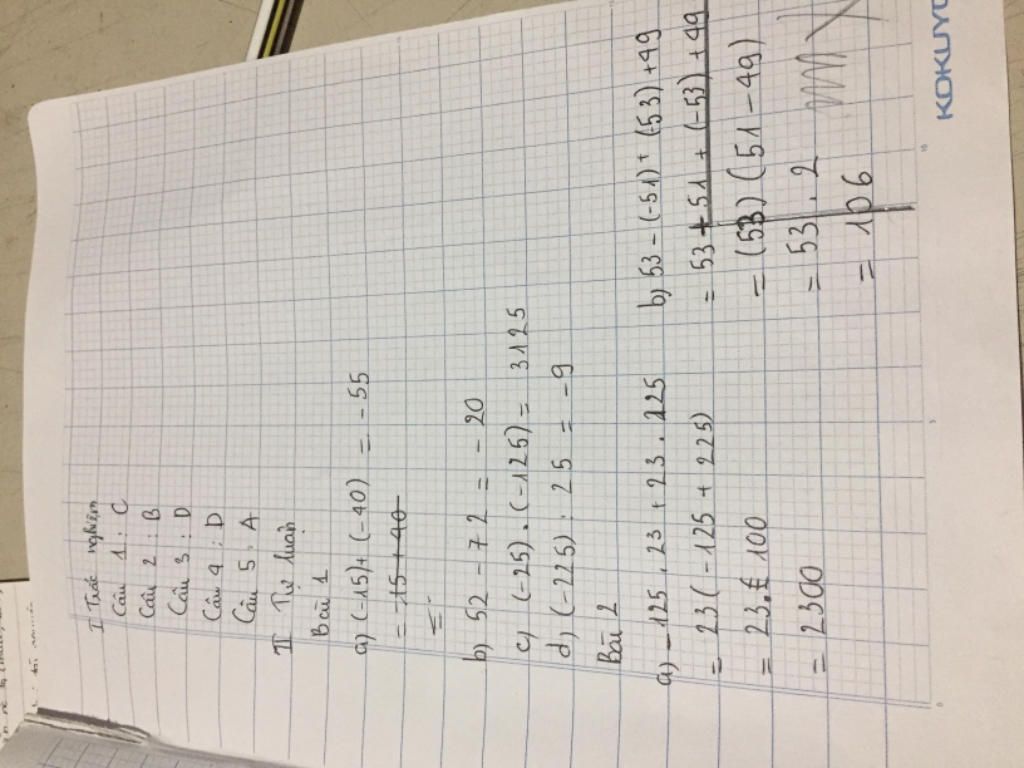 I Trắc nghiệm
Câu 1 : C
Câu 2 : B
Câu 3 : D
Câu 4 : D
Câu 5 : A
II Tự luận
Bài 1
a) (-15) + (-40) = -55
= -15 + 40
=
b) 52 - 72 = -20
c) (-25) . (-125) = 3125
d) (-225) : 25 = -9
Bài 2
a) -125 . 23 + 23 . 225
= 23 (-125 + 225)
= 23 . 100
= 2300
b) 53 - (-51) + (-53) + 49
= 53 + 51 + (-53) + 49
= (53) (51 - 49)
= 53 . 2
= 106
KOKUYO